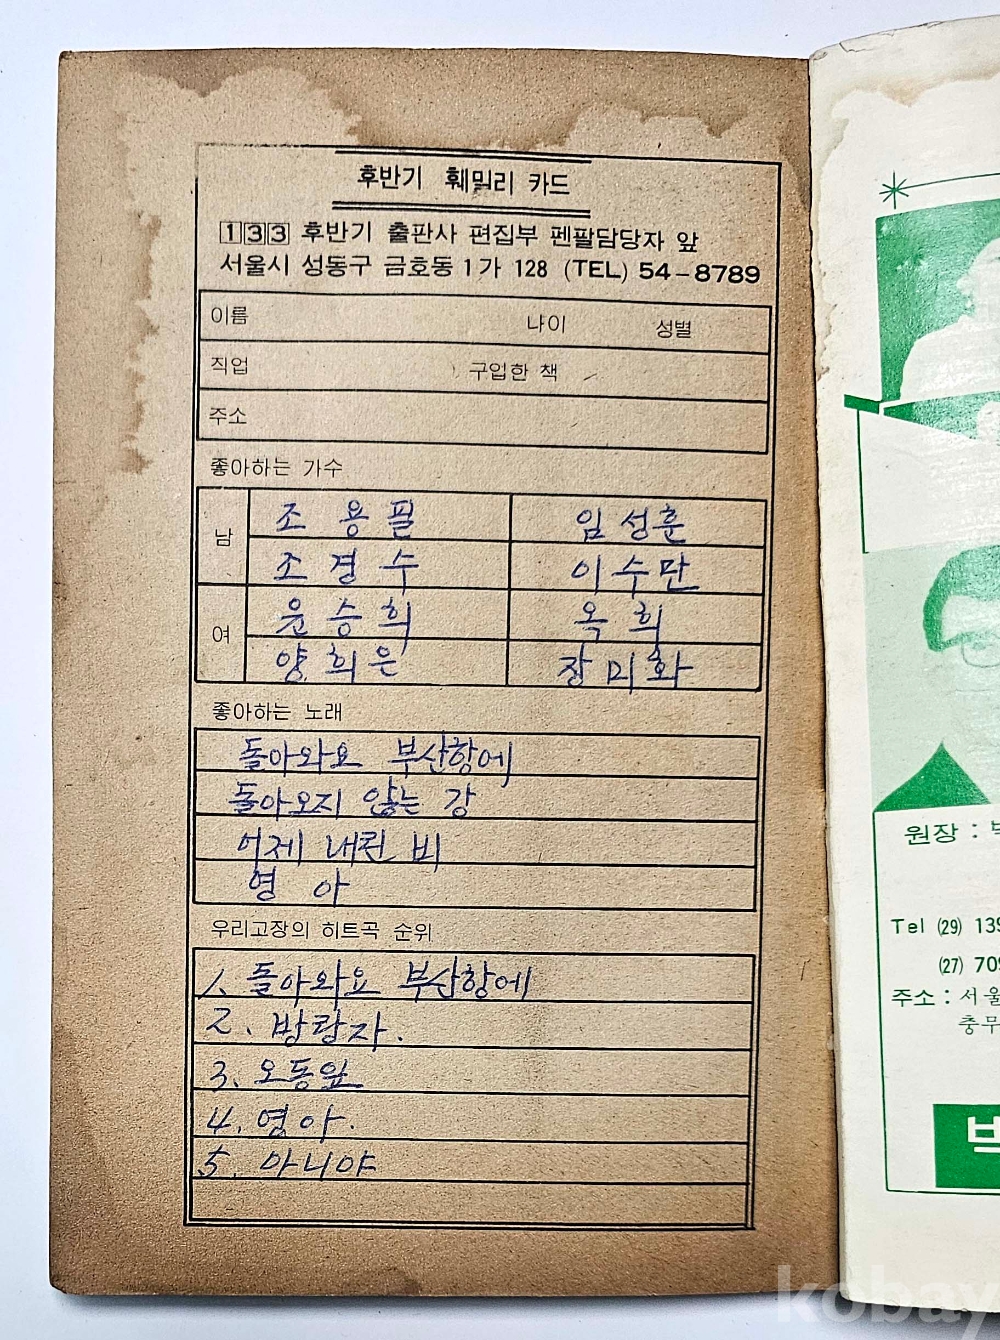 후반기 훼밀리 카드
133 후반기 출판사 편집부 펜팔담당자 앞
서울시 성동구 금호동 1가 128 (TEL) 54-8789
이름 나이 성별
직업 구입한 책
주소
좋아하는 가수
남 조용필 임성훈
조경수 이수만
여 윤승희 옥희
양희은 장미화
좋아하는 노래
돌아와요 부산항에
돌아오지 않는 강
어제 내린 비
영아
우리고장의 히트곡 순위
1. 돌아와요 부산항에
2. 방랑자.
3. 오동잎
4. 영아.
5. 아니야
원장 :
Tel (29) 139
(27) 709
주소 : 서울
충무
kobay